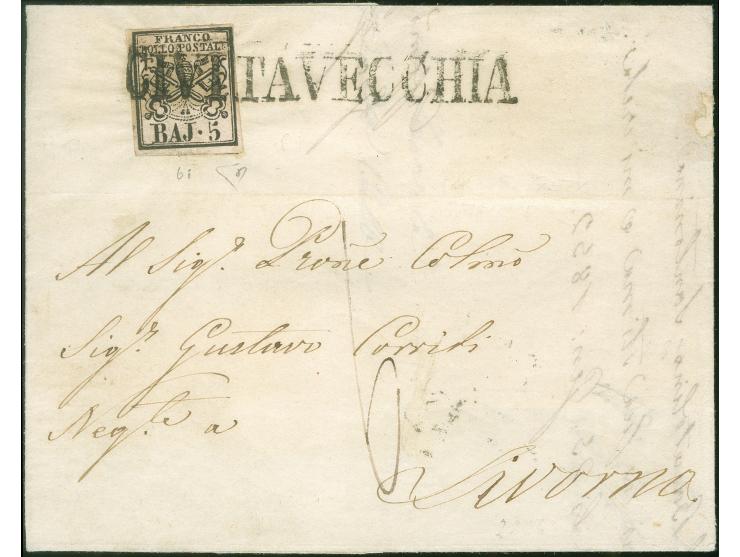 FRANCO
BOLLO POSTALE
CIVITAVECCHIA
BAJ·5
6i
Al Sigr. Prone Colmo
Sigr. Gustavo Corridi
Negte a
Livorno